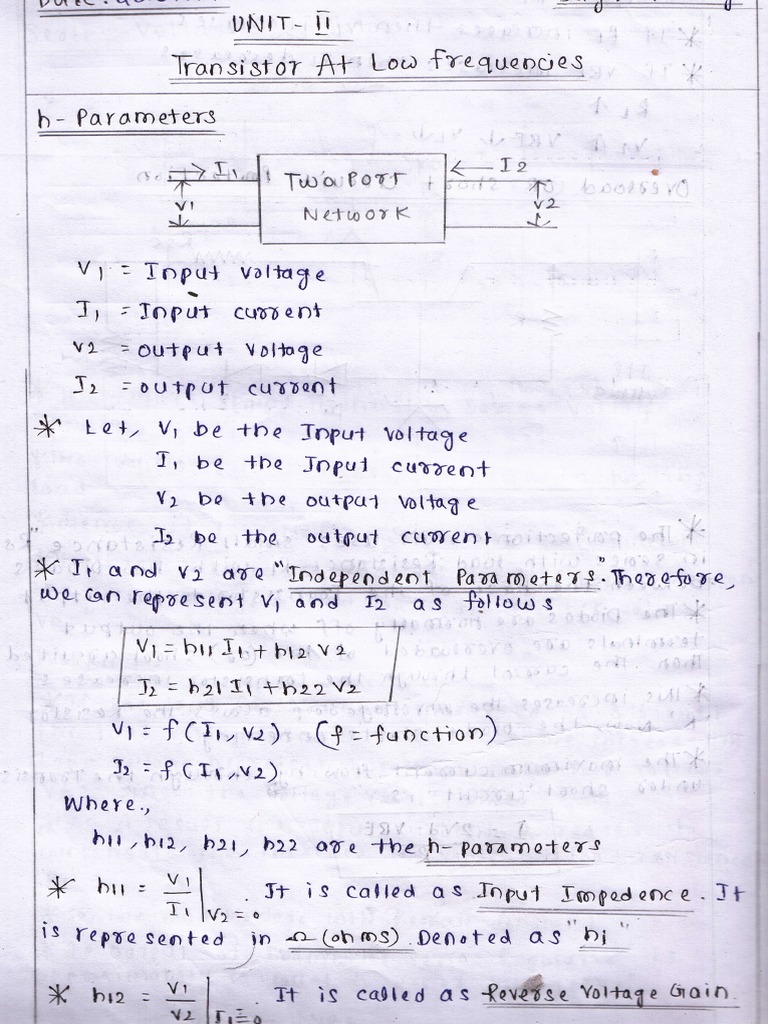 UNIT-II
Transistor At Low frequencies
h-Parameters
I1 Two Port I2
V1 Network V2
V1 = Input voltage
I1 = Input current
V2 = output voltage
I2 = output current
* Let, V1 be the Input voltage
I1 be the Input current
V2 be the output voltage
I2 be the output current
* I1 and V2 are "Independent Parameters". Therefore,
we can represent V1 and I2 as follows
V1 = h11 I1 + h12 V2
I2 = h21 I1 + h22 V2
V1 = f(I1, V2) (f = function)
I2 = f(I1, V2)
Where.,
h11, h12, h21, h22 are the h-parameters
* h11 = V1/I1 | V2=0 . It is called as Input Impedence. It
is represented in Ω (ohms). Denoted as "hi"
* h12 = V1/V2 | I1=0 . It is called as Reverse Voltage Gain.